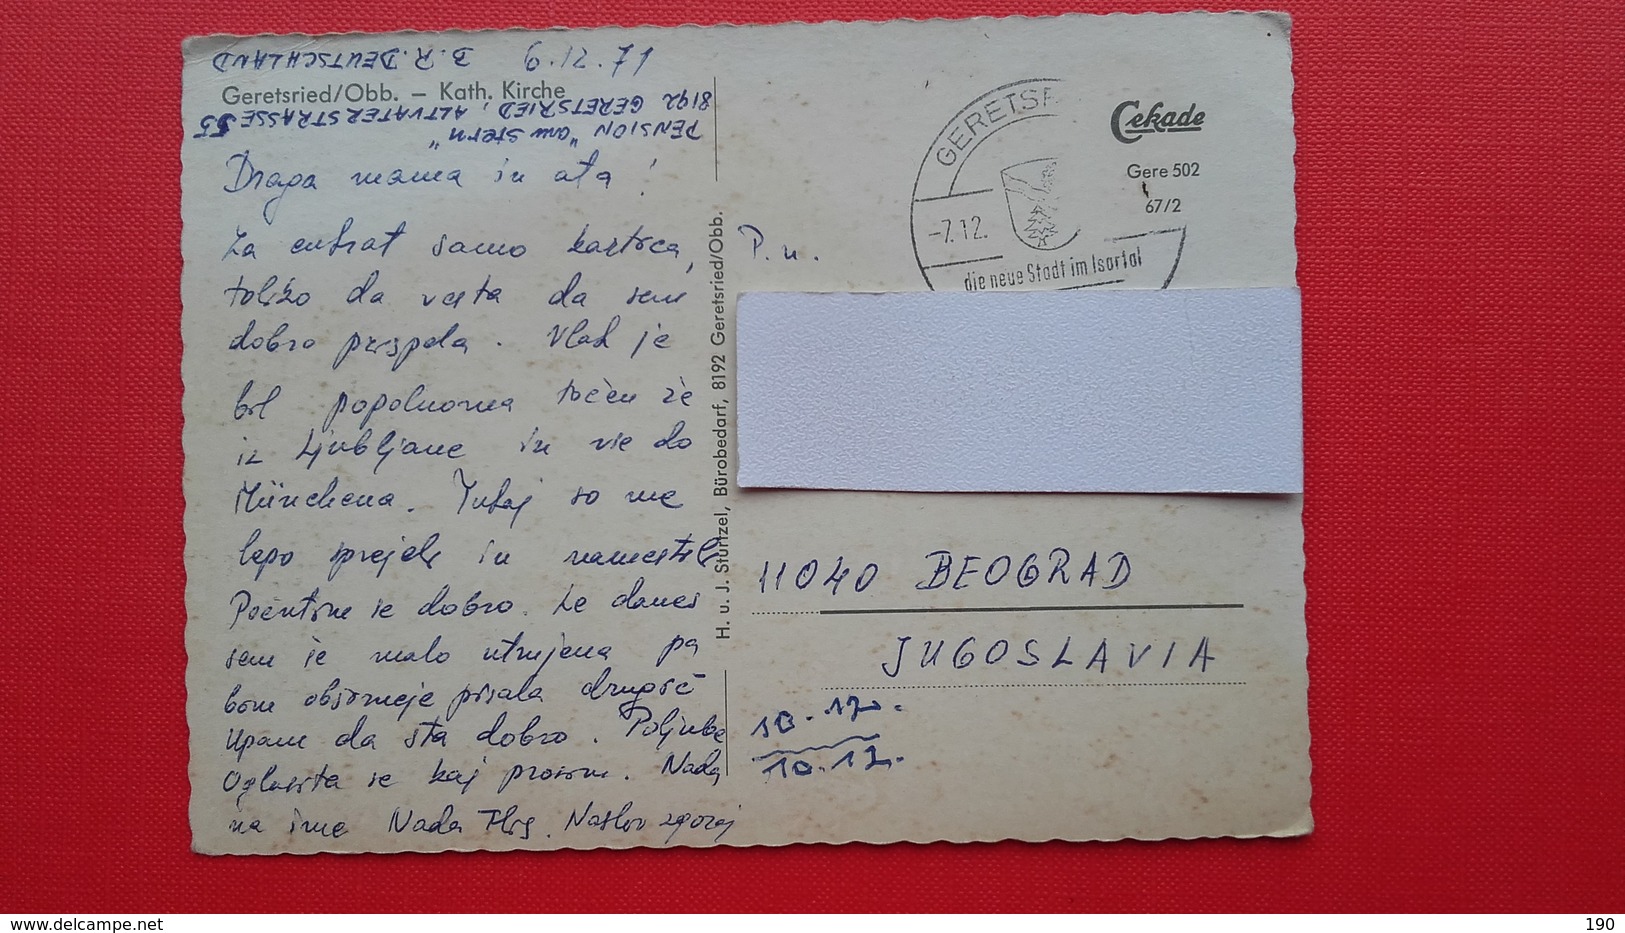 6.12.71 B.R. DEUTSCHLAND
Geretsried/Obb. — Kath. Kirche
PENSION "am Stern"
8192 GERETSRIED, ALTVATERSTRASSE 55
Draga mama in ata!
Za enkrat samo kartica,
toliko da vesta da sem
dobro prispela. Vlak je
bil popolnoma točen že
iz Ljubljane in vse do
Münchena. Tukaj so me
lepo sprejeli in namestili
Počutim se dobro. Le danes
sem še malo utrujena pa
bom obširneje pisala drugič
Upam da sta dobro. Poljube
Oglasita se kaj prosim. Nada
na ime Nada Naslov zgoraj
H. u. J. Stünzel, Bürobedarf, 8192 Geretsried/Obb.
GERETS
-7.12.
die neue Stadt im Isartal
Cekade
Gere 502
67/2
P. n.
11040 BEOGRAD
JUGOSLAVIA
10.12.
190